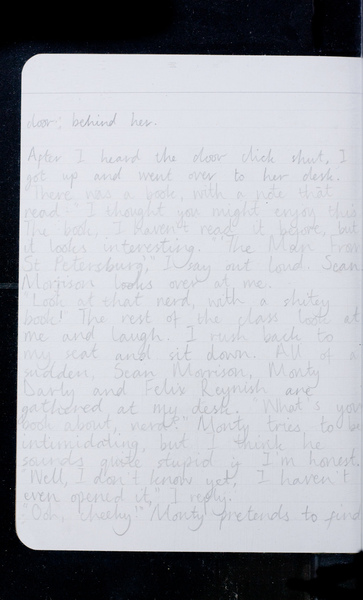 door, behind her.
After I heard the door click shut, I
got up and went over to her desk.
There was a book, with a note that
read: "I thought you might enjoy this
The book, I haven't read it before, but
it looks interesting. "The Man From
St Petersburg," I say out loud. Sean
Morrison looks over at me.
"Look at that nerd, with a shitey
book!" The rest of the class look at
me and laugh. I rush back to
my seat and sit down. All of a
sudden, Sean Morrison, Monty
Darly and Felix Reynish are
gathered at my desk. "What's your
book about, nerd?" Monty tries to be
intimidating, but I think he
sounds quite stupid if I'm honest.
"Well, I don't know yet, I haven't
even opened it," I reply.
"Ooh, cheeky!" Monty pretends to find